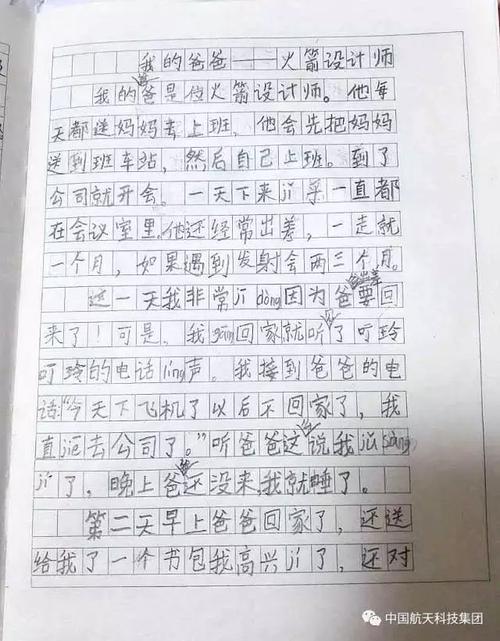 我的爸爸——火箭设计师
我的爸爸是位火箭设计师。他每
天都送妈妈去上班，他会先把妈妈
送到班车站，然后自己上班。到了
公司就开会。一天下来jǐ 乎一直都
在会议室里。他还经常出差，一走就
一个月，如果遇到发射会两三个月。
这一天我非常jī dòng因为爸爸出差要回
来了！可是，我gāng回家就听到了叮玲
叮玲的电话líng声。我接到爸爸的电
话：“今天下飞机了以后不回家了，我
直jiē去公司了。”听爸爸这么说我jǔ sàng
jí了，晚上爸爸还没来，我就睡了。
第二天早上爸爸回家了，还送
给我了一个书包我高兴jí了，还对
中国航天科技集团